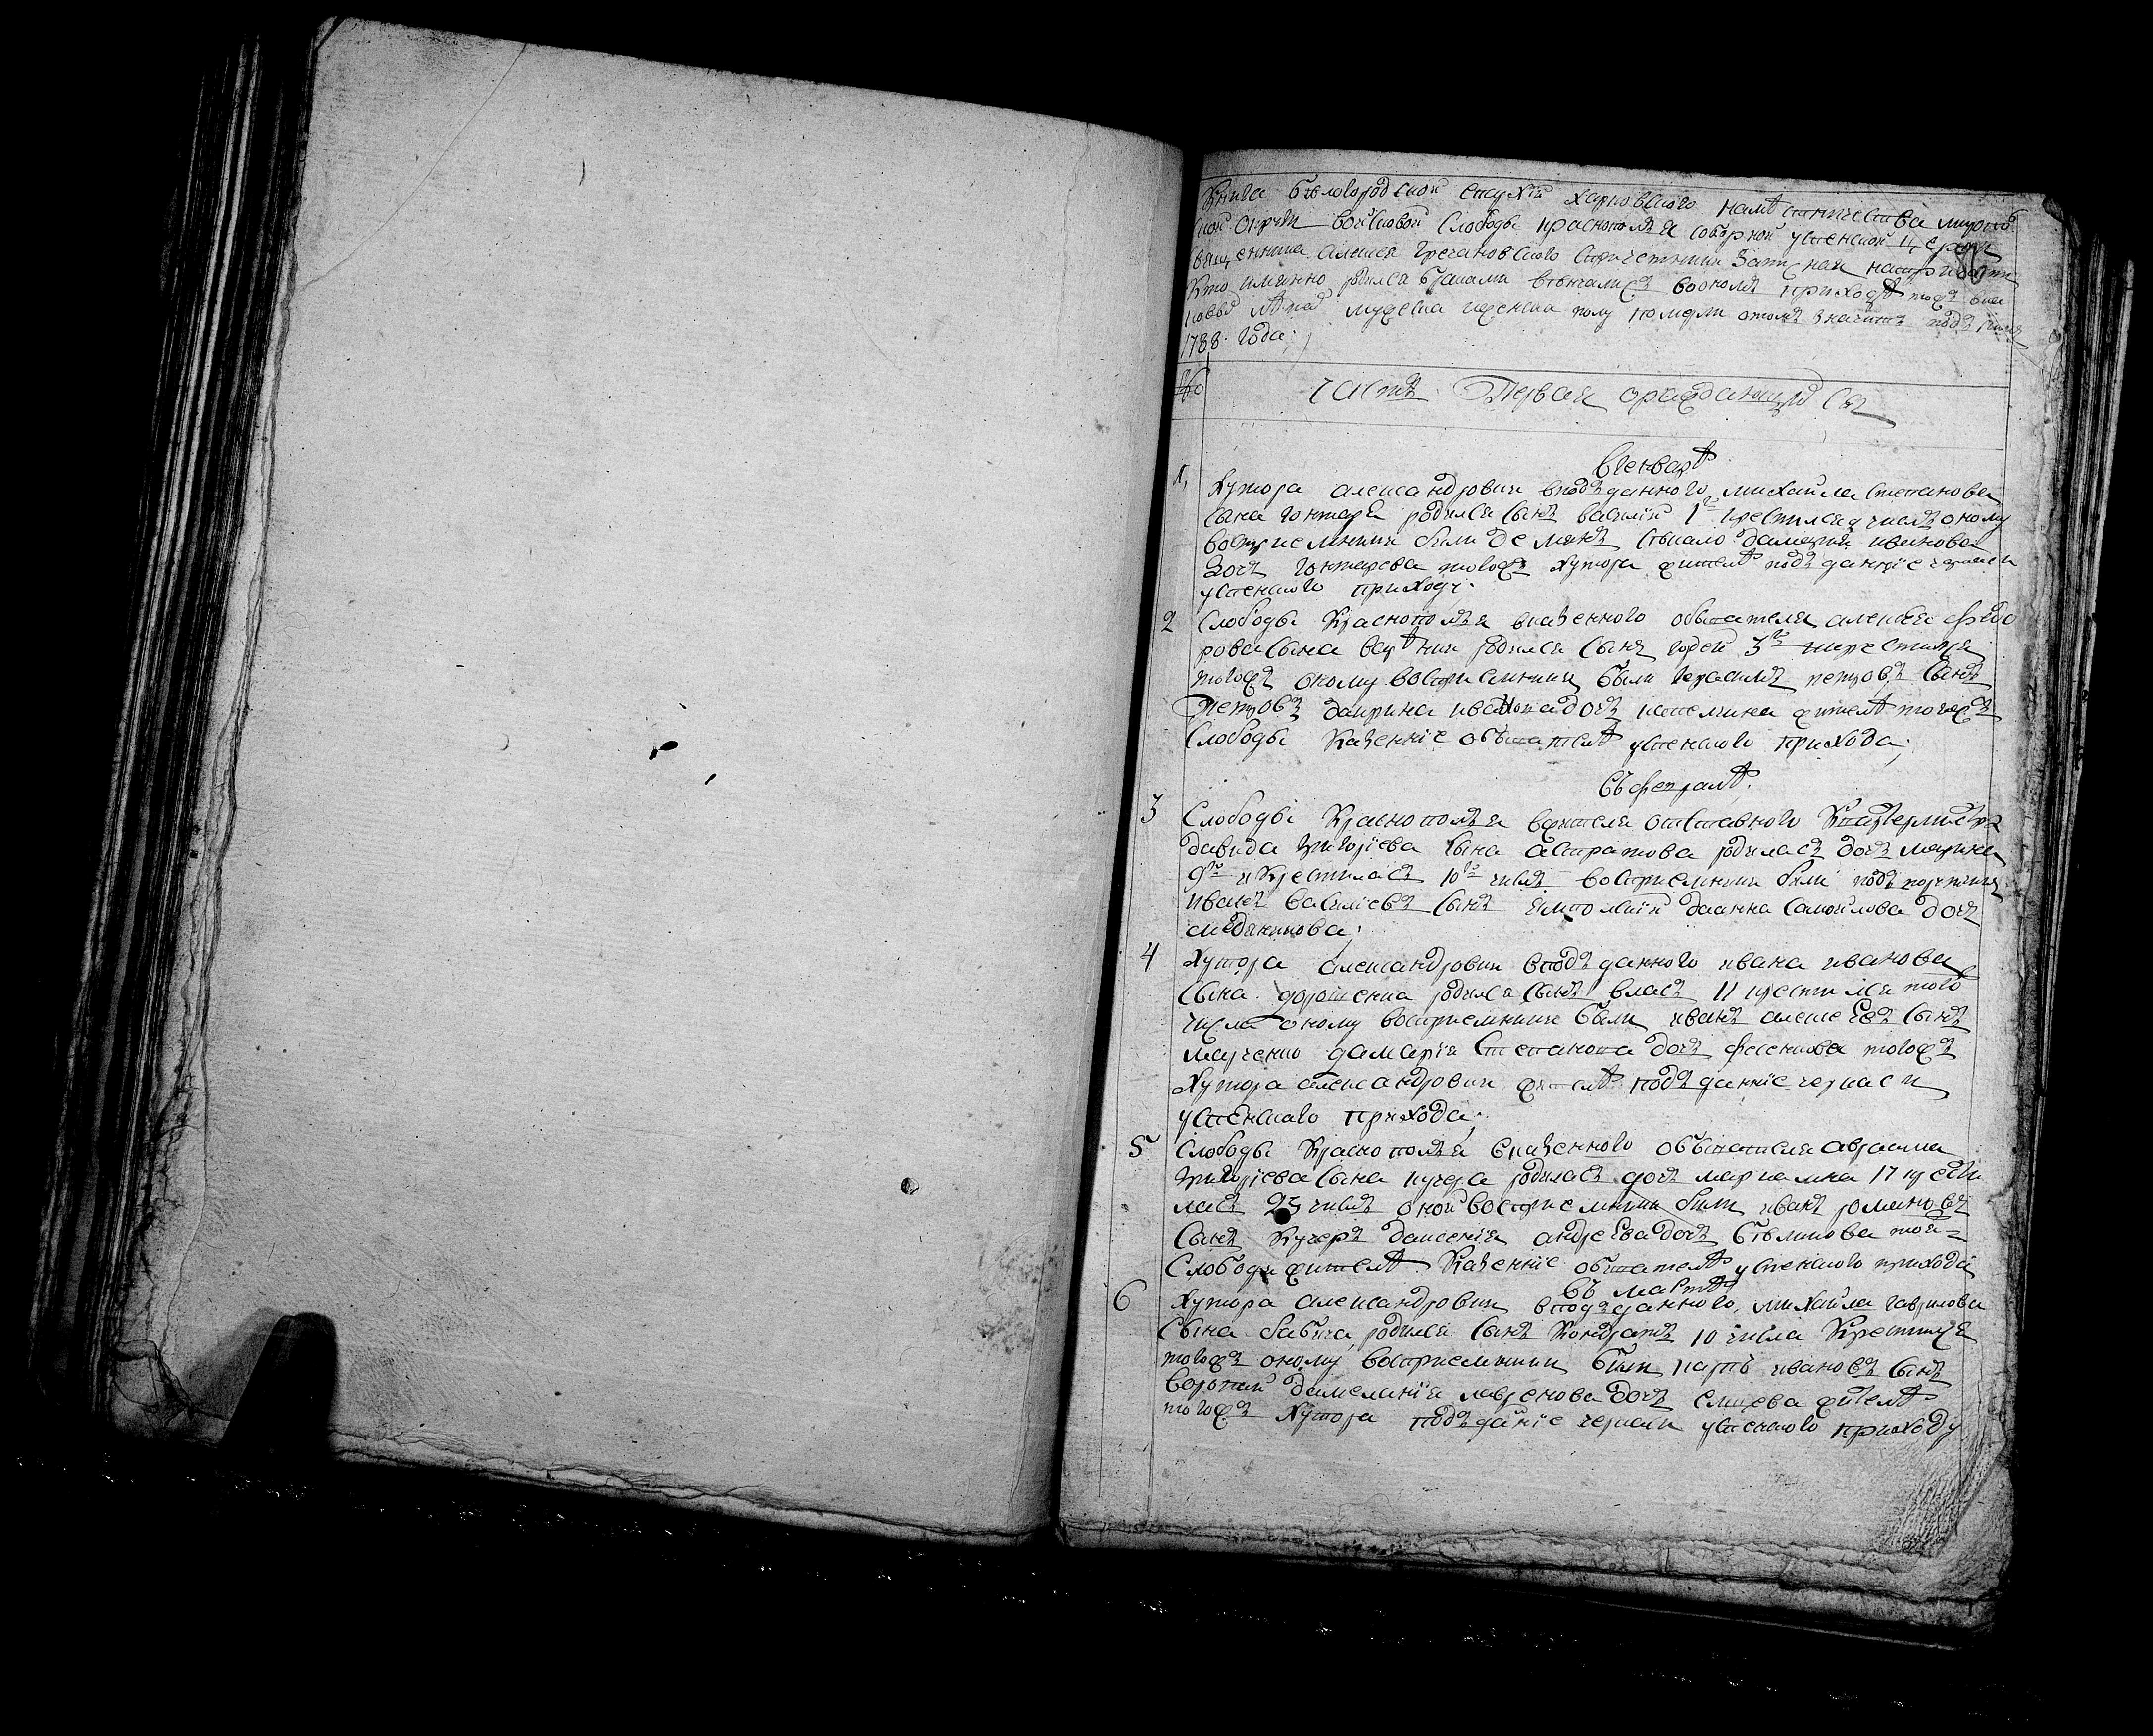 Книга бѣлогородской епархіи харковского намѣстничества миропол
ской округи войсковой Слободы краснополя соборной успенской церкви
священника алексея Гречановского спричетники записная напри
кто имянно родился браками вѣнчались воономъ приходѣ тожъ
мужеска женска полу померли отомъ значитъ подъ симъ
1788 года
№ часть Первая ораждающихся
вгенварѣ
1, Хутора александровки вподданного михайла степанова
сына гонтаря родился сынъ василий 1го крестился числа оному
восприемники были демянъ дамария иванова
дочь гонтарева тогожъ хутора жителѣ подданніе черкаси
успенского приходу.
2 Слободы Краснополя вказенного обывателя алексея федо
рова сына родился сынъ 3го икрестился
тогожъ оному восприемники были герасимъ петровъ сынъ
Петровъ даирина иванова дочь жителѣ тоежъ
Слободы Казенніе обывателѣ успенского прихода;
въ февралѣ.
3 Слободы Краснополя вжителя отставного Квартермистра
давида григориева сына астратова родилась дочь марина
9го икрестилась 10го числа восприемники были подпорутчикъ
иванъ василиевъ сынъ даанна самойлова дочь
4 Хутора александровки вподданного ивана иванова
сына дорошенка родился сынъ власъ 11 крестился того
числа оному восприемники были иванъ алексеевъ сынъ
марченко дамария степанова дочь фесенкова тогожъ
Хутора александровки жителѣ подданніе черкаси
успенского прихода;
5 Слободы Краснополя вказенного обывателя авраама
григориева сына кучера родилась дочь мариамна 17 крести
лась 23 числа оной восприемники были иванъ романовъ
сынъ Кучеръ даксения андреева дочь той=
Слободы жителѣ Казенніе обывателѣ успенского прихода
въ мартѣ
6 Хутора александровки вподданного михайла гаврилова
сына бабича родился сынъ Кондратъ 10 числа Крестился
тогожъ оному восприемники были карпъ ивановъ сынъ
дамелания лавренова дочь жителѣ
тогожъ Хутора подданіе черкаси успенского приходу